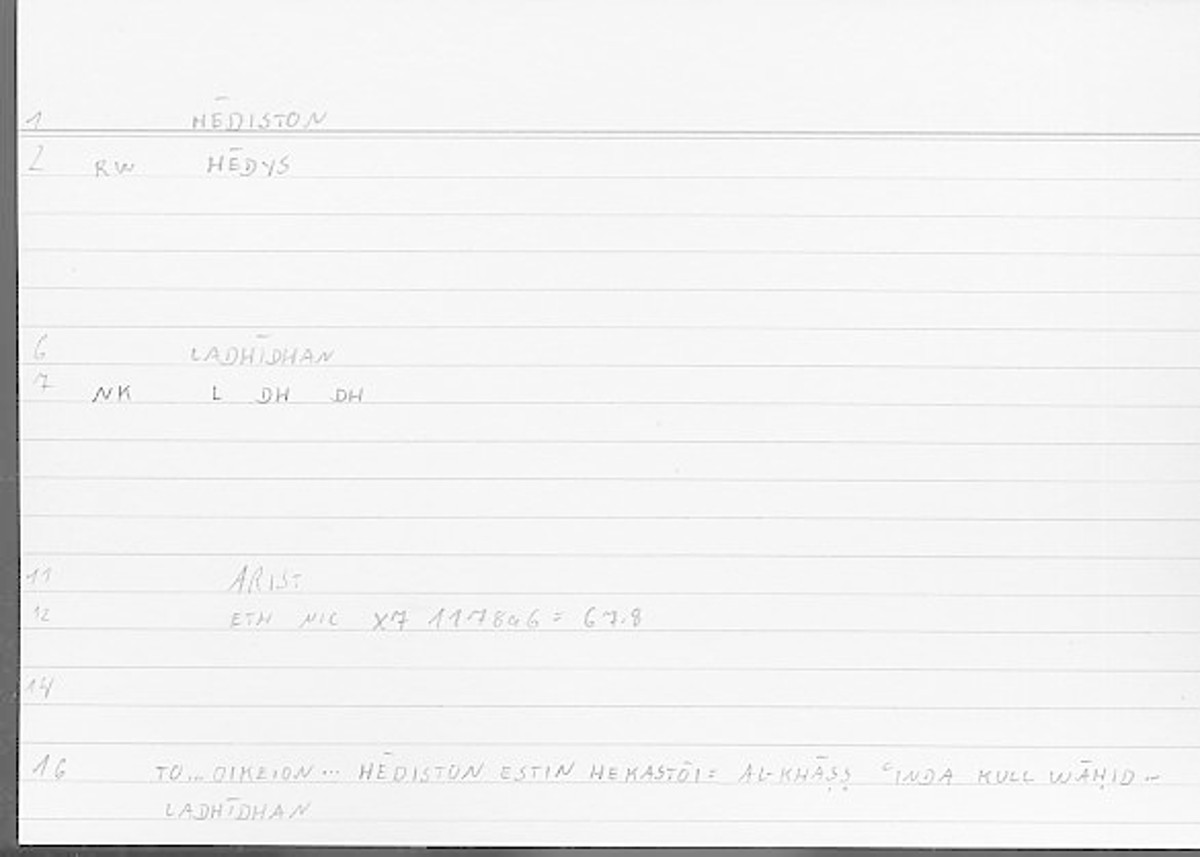 1 HĒDISTON
2 RW HĒDYS
6 LADHĪDHAN
7 NK L DH DH
11 ARIST
12 ETH NIC X7 1178a6 = 67.8
14
16 TO... OIKEION... HĒDISTON ESTIN HEKASTŌI = AL-KHĀṢṢ ʿINDA KULL WĀḤID -
LADHĪDHAN